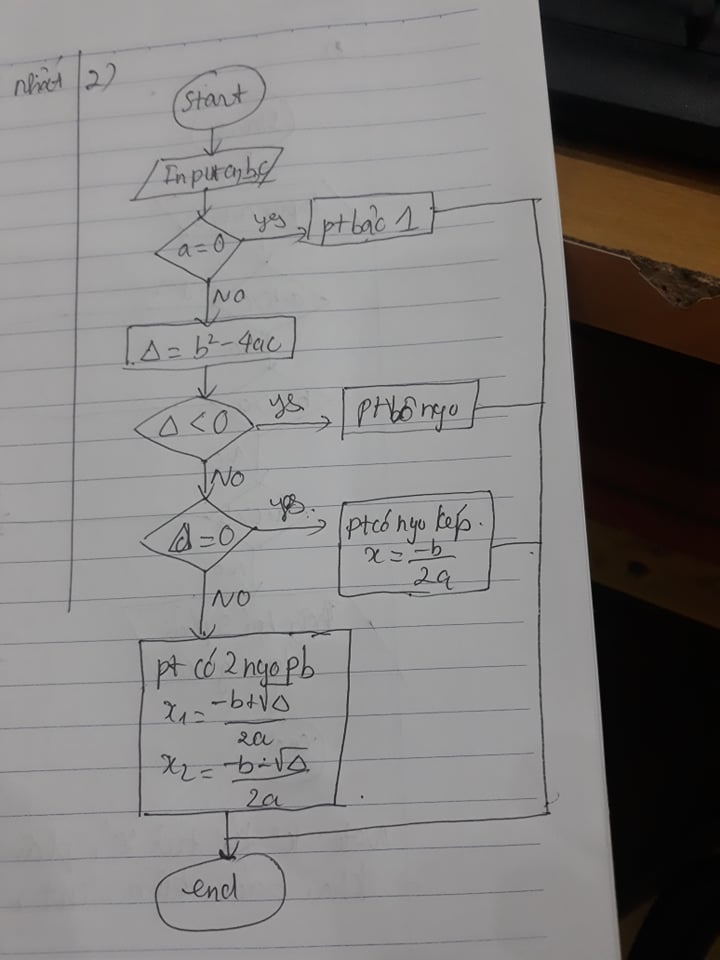 nhất
2)
Start
Input a,b,c
a=0
yes
pt bậc 1
NO
Δ = b² - 4ac
Δ < 0
yes
pt vô ngo
NO
Δ = 0
yes
pt có ngo kép.
x = -b / 2a
NO
pt có 2 ngo pb
x₁ = -b+√Δ / 2a
x₂ = -b-√Δ / 2a
end